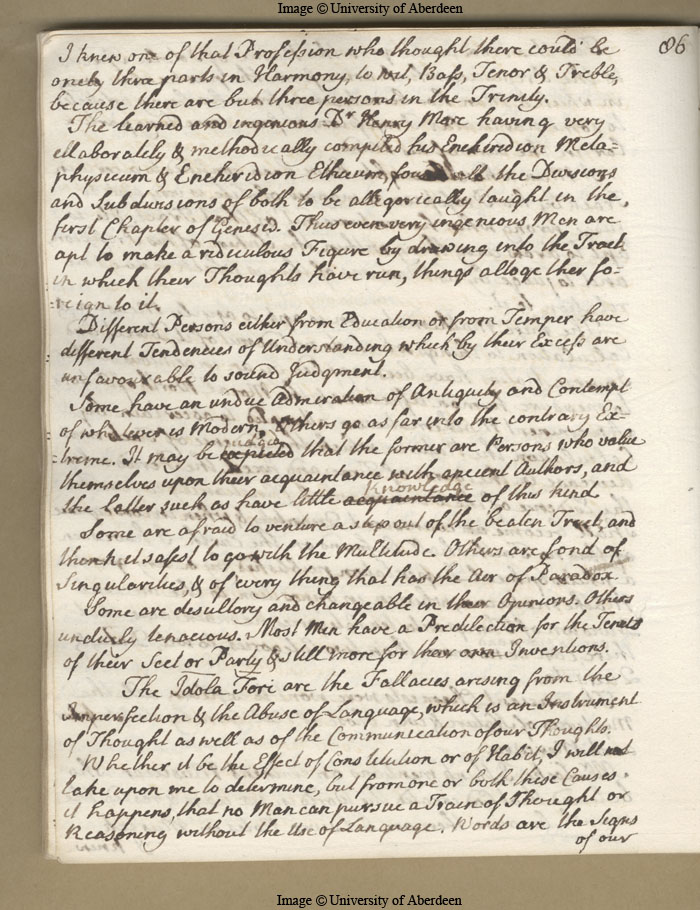 Image © University of Aberdeen
86
I knew one of that Profession who thought there could be
onely three parts in Harmony, to wit, Bass, Tenor & Treble,
because there are but three persons in the Trinity.
The learned and ingenious Dr Henry More having very
ellaborately & methodically compiled his Enchiridion Meta=
physicum & Enchiridion Ethicum, found all the Divisions
and Subdivisions of both to be allegorically taught in the,
first Chapter of Genesis. Thus even very ingenious Men are
apt to make a ridiculous Figure by drawing into the Tract
in which their Thoughts have run, things altoge ther fo-
=reign to it.
Different Persons either from Education or from Temper have
different Tendencies of Understanding which by their Excess are
unfavourable to sound Judgment.
Some have an undue Admiration of Antiquity and Contempt
of whatever is Modern, Others go as far into the contrary Ex-
judged
=treme. It may be expected that the former are Persons who value
themselves upon their acquaintance with ancient Authors, and
Knowledge
the latter such as have little acquaintance of this kind
Some are afraid to venture a step out of the beaten Tract, and
think it safest to go with the Multitude. Others are fond of
Singularities, & of every thing that has the Air of Paradox
Some are desultory and changeable in their Opinions. Others
unduely tenacious. Most Men have a Predilection for the Tenets
of their Sect or Party & still more for their own Inventions.
The Idola Fori are the Fallacies arising from the
Imperfection & the Abuse of Language, which is an Instrument
of Thought as well as of the Communication of our Thoughts.
Whether it be the Effect of Constitution or of Habit, I will not
take upon me to determine, but from one or both these Causes
it happens, that no Man can pursue a Train of Thought or
Reasoning without the Use of Language. Words are the Signs
of our
Image © University of Aberdeen